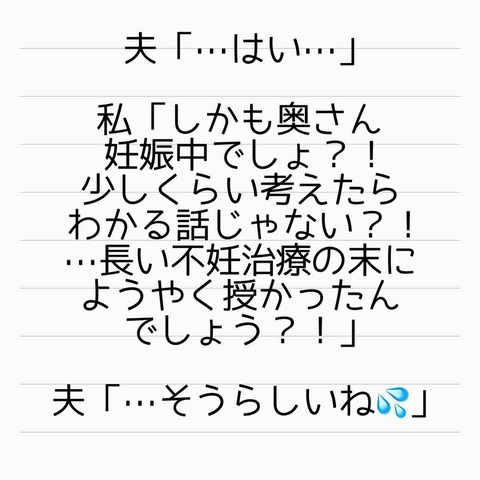 夫「…はい…」
私「しかも奥さん
妊娠中でしょ？！
少しくらい考えたら
わかる話じゃない？！
…長い不妊治療の末に
ようやく授かったん
でしょう？！」
夫「…そうらしいね💦」